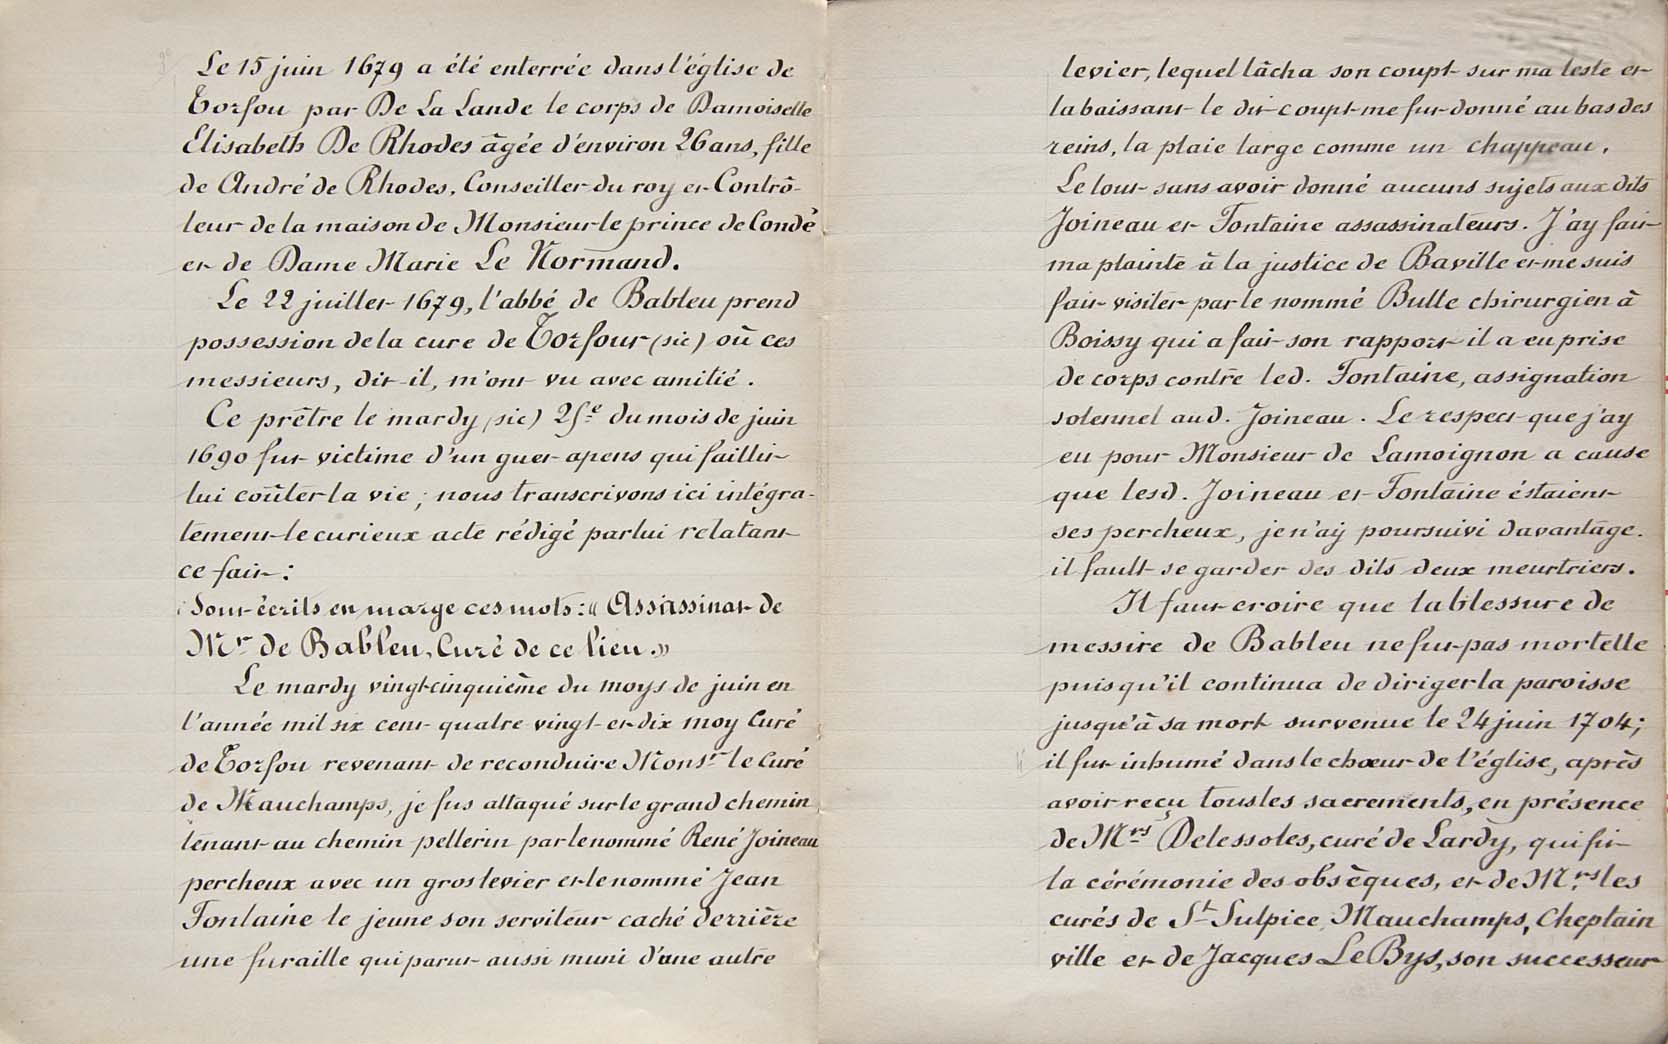 Le 15 juin 1679 a été enterrée dans l'église de
Torfou par De La Lande le corps de Damoiselle
Elisabeth De Rhodes âgée d'environ 26 ans, fille
de André de Rhodes, Conseiller du roy et Contrô-
leur de la maison de Monsieur le prince de Condé
et de Dame Marie Le Normand.
Le 22 juillet 1679, l'abbé de Bableu prend
possession de la cure de Torfout (sic) où ces
messieurs, dit-il, m'ont vu avec amitié.
Ce prêtre le mardy (sic) 25e du mois de juin
1690 fut victime d'un guet apens qui faillit
lui coûter la vie ; nous transcrivons ici intégra-
lement le curieux acte rédigé par lui relatant
ce fait :
Sont écrits en marge ces mots : « Assassinat de
Mr de Bableu, Curé de ce lieu. »
Le mardy vingt-cinquième du moys de juin en
l'année mil six cent quatre vingt et dix moy Curé
de Torfou revenant de reconduire Monsr le Curé
de Mauchamps, je fus attaqué sur le grand chemin
tenant au chemin pellerin par le nommé René Joineau
percheux avec un gros levier et le nommé Jean
Fontaine le jeune son serviteur caché derrière
une furaille qui parut aussi muni d'une autre
levier, lequel lâcha son coupt sur ma teste et
la baissant le dit coupt me fut donné au bas des
reins, la plaie large comme un chappeau.
Le tout sans avoir donné aucuns sujets aux dits
Joineau et Fontaine assassinateurs. J'ay fait
ma plainte à la justice de Baville et me suis
fait visiter par le nommé Bulte chirurgien à
Boissy qui a fait son rapport il a eu prise
de corps contre led. Fontaine, assignation
solennel aud. Joineau. Le respect que j'ay
eu pour Monsieur de Lamoignon a cause
que lesd. Joineau et Fontaine éstaient
ses percheux, je n'aÿ poursuivi davantage.
il fault se garder des dits deux meurtriers.
Il faut croire que la blessure de
messire de Bableu ne fut pas mortelle
puisqu'il continua de diriger la paroisse
jusqu'à sa mort survenue le 24 juin 1704;
il fut inhumé dans le chœur de l'église, après
avoir reçu tous les sacrements, en présence
de Mrs Delessoles, curé de Lardy, qui fit
la cérémonie des obsèques, et de Mrs les
curés de St Sulpice, Mauchamps, Cheptain
ville et de Jacques Le Bys, son successeur